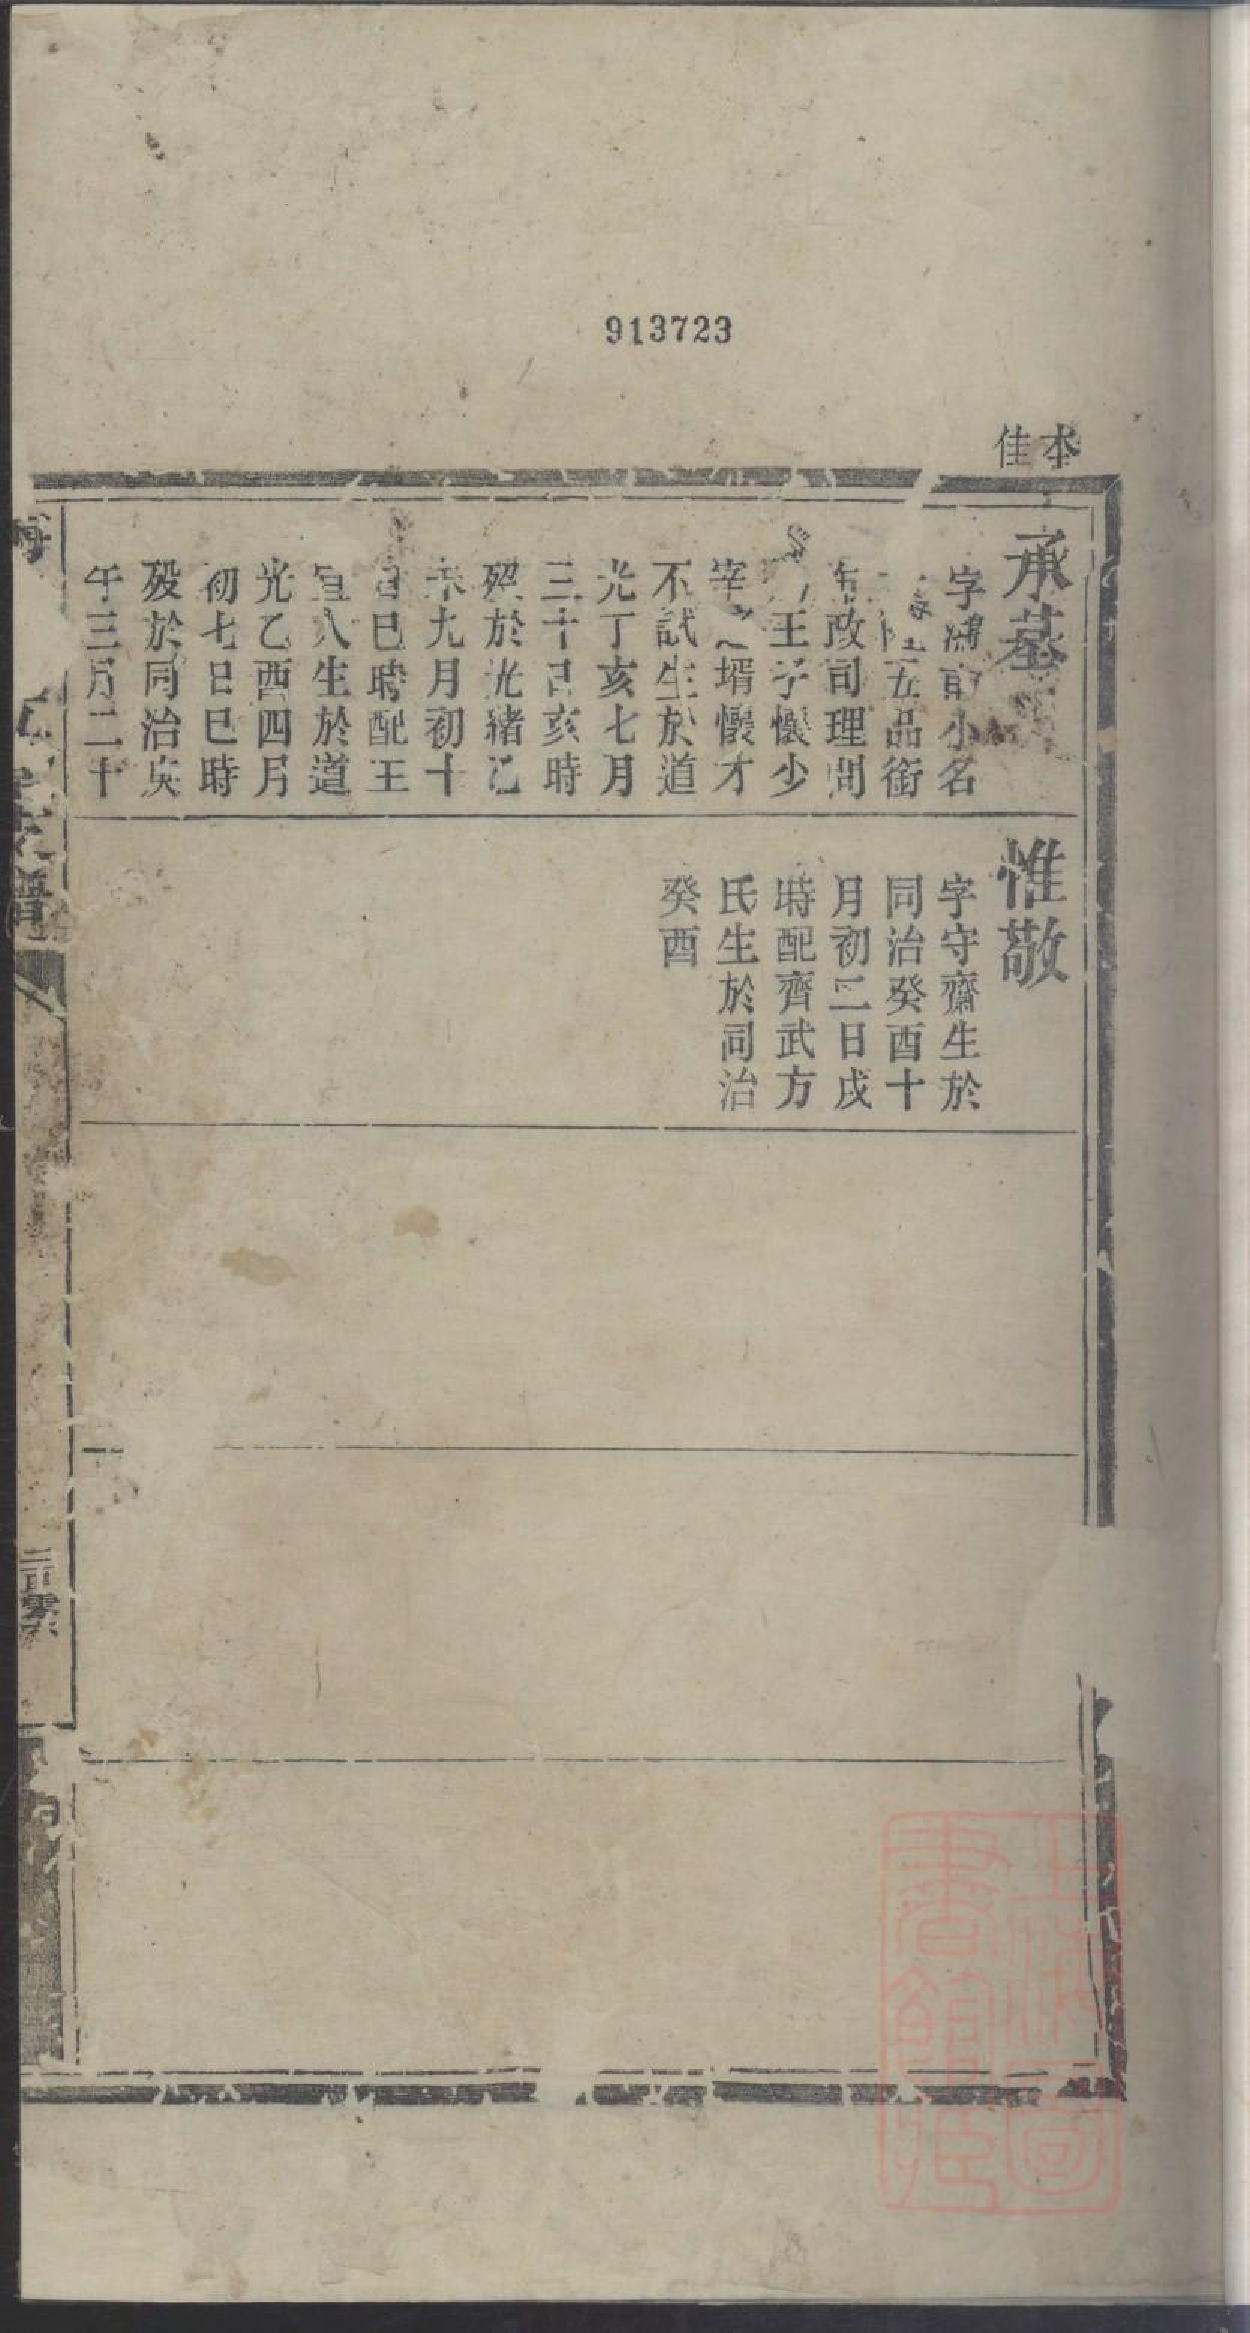 913723
本
佳
承基
字鴻
小名
五品銜
改司理問
王子懷少
宰之壻懷才
不試生於道
光丁亥七月
三十日亥時
歿於光緒乙
未九月初十
日巳時配王
宜人生於道
光乙酉四月
初七日巳時
歿於同治庚
午三月二十
惟敬
字守齋生於
同治癸酉十
月初二日戌
時配齊武方
氏生於同治
癸酉
譜
上海圖
書館藏